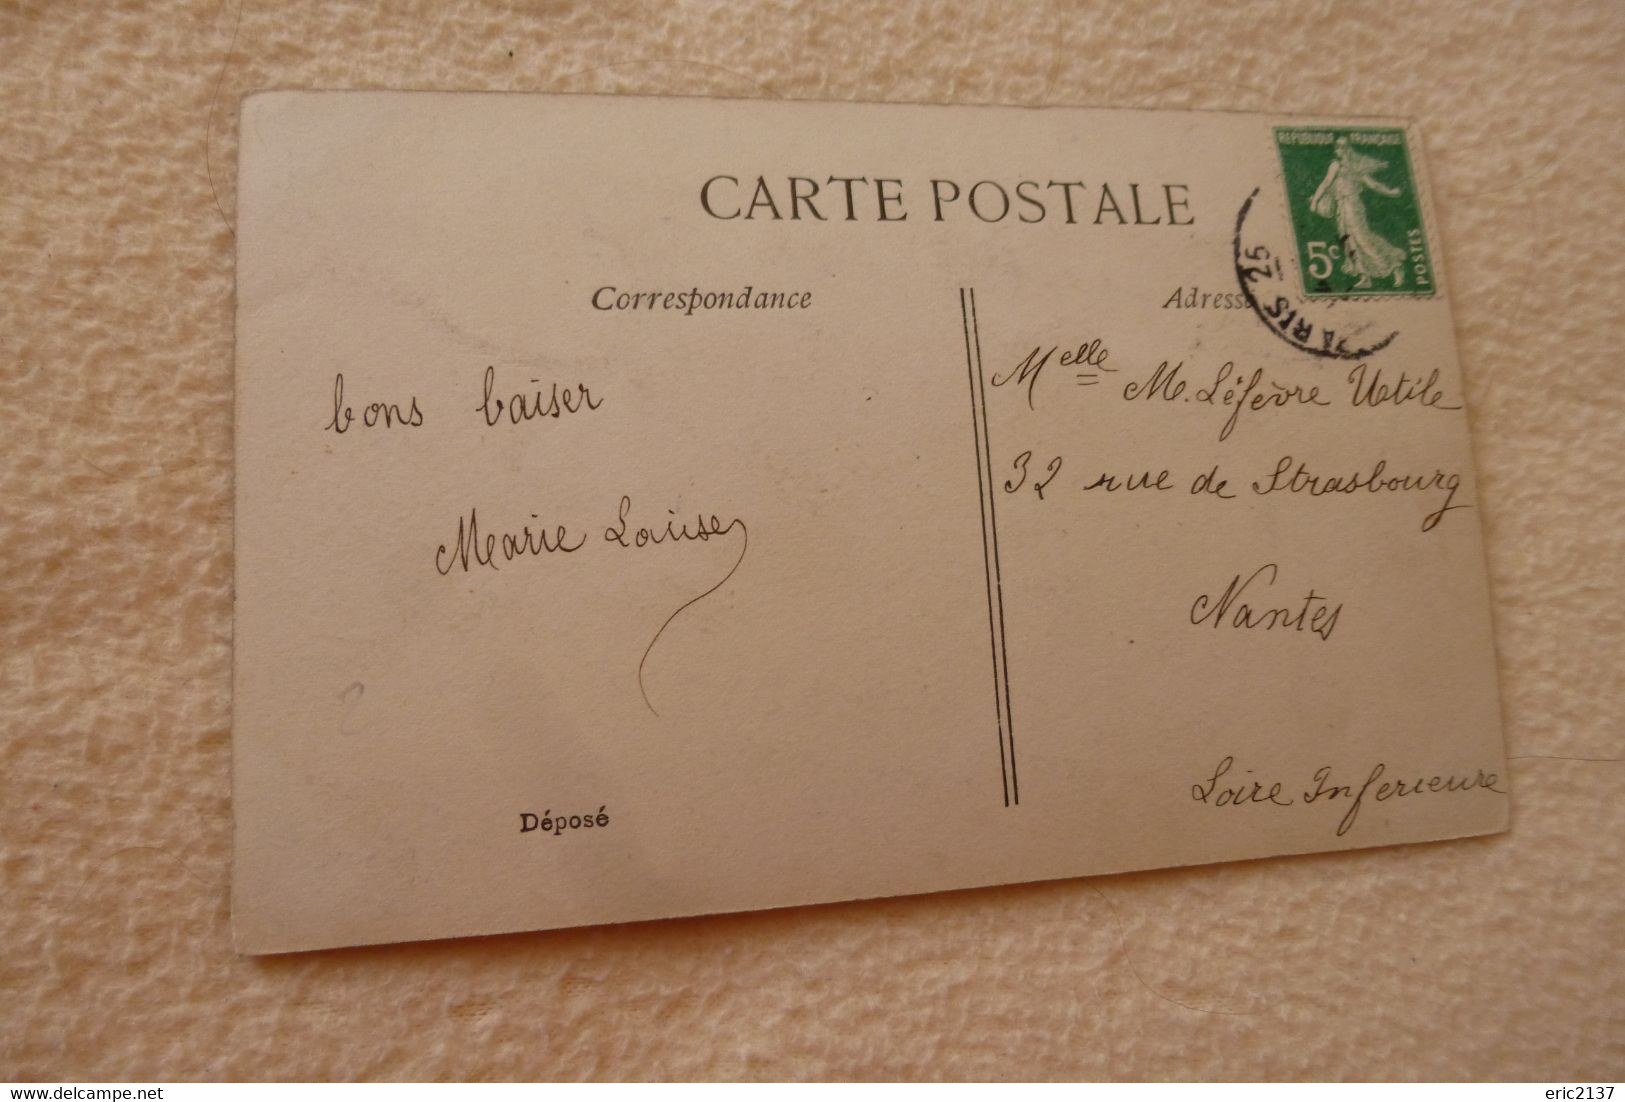 CARTE POSTALE
Correspondance
bons baiser
Marie Louise
Déposé
RÉPUBLIQUE FRANÇAISE
5c
POSTES
PARIS 25
Adresse
Melle M. Léfèvre Utile
32 rue de Strasbourg
Nantes
Loire Inferieure
www.delcampe.net
eric2137